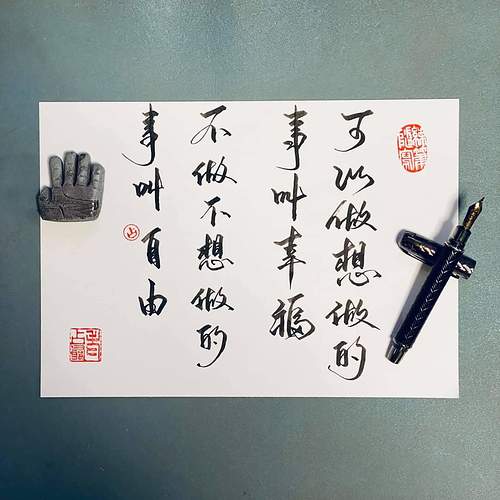 可以做想做的
事叫幸福
不做不想做的
事叫自由
山